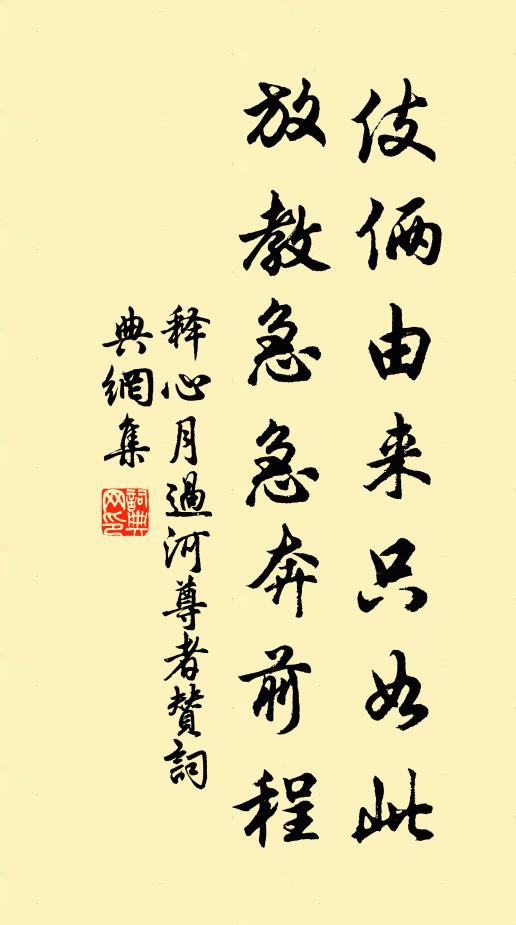 伎倆由来只如此
放教急急奔前程
释心月過河尊者贊詞
典網集
詞典網印